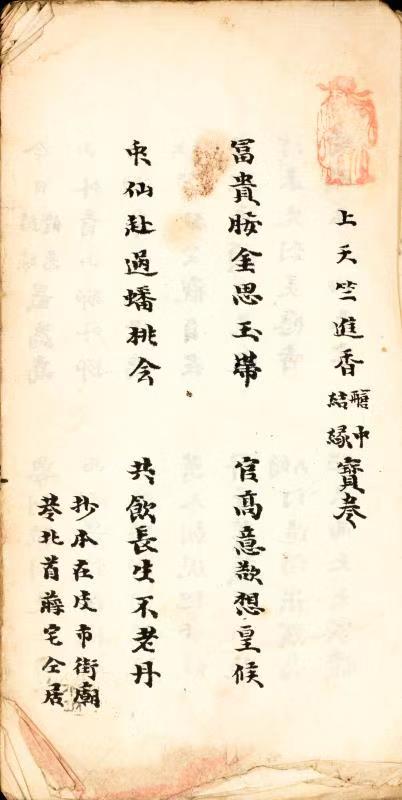 上天竺進香中結緣寶卷
冨貴腰金思玉帶 官高意欲想皇候
仙赴過蟠桃会 共飲長生不老丹
抄本在皮市街廟
巷北首蔣宅仝居